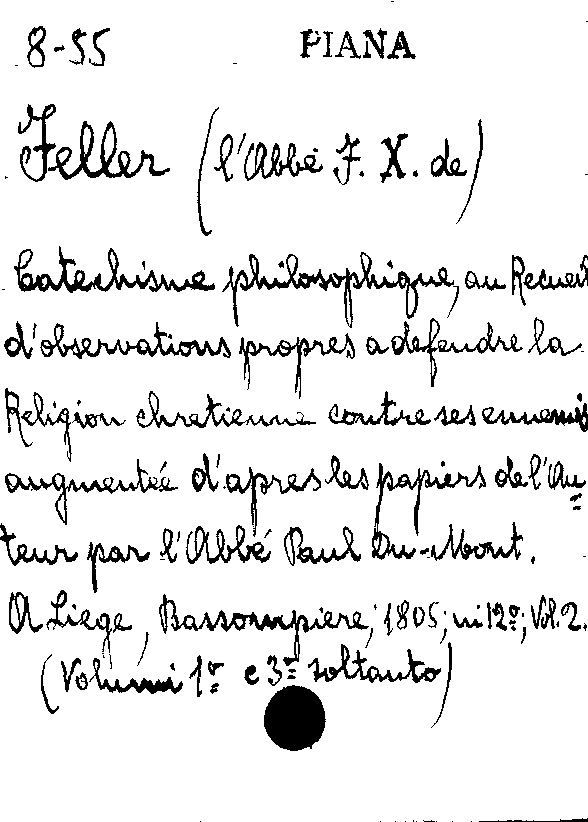 8-55 PIANA
Feller (l'Abbé F. X. de)
Catechisme philosophique, au Recueil
d'observations propres a defendre la
Religion chretienne contre ses ennemis
augmentée d'apres les papiers de l'Au=
teur par l'Abbé Paul Du-Mont.
A Liege, Bassompiere, 1805; in 12º; Vol. 2.
(Volumi 1º e 3º soltanto)